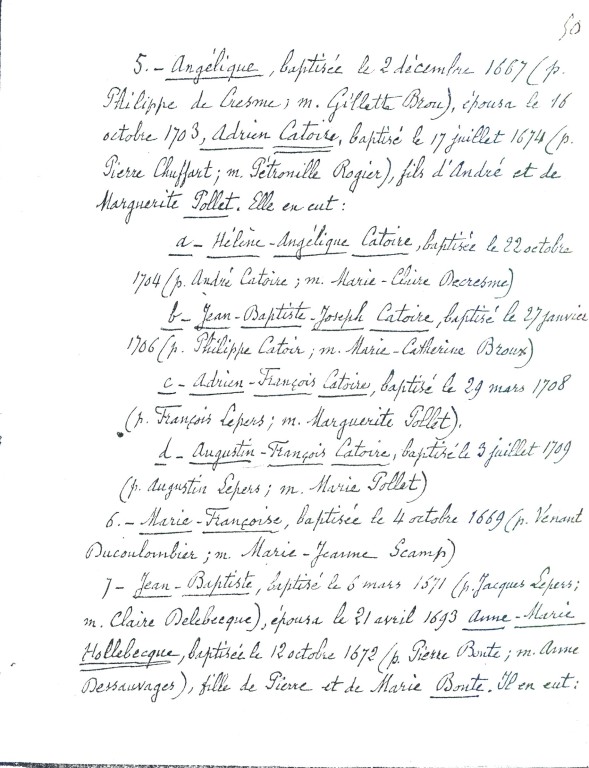 50
5. - Angélique, baptisée le 2 décembre 1667 (p.
Philippe de Cresme ; m. Gillette Brou), épousa le 16
octobre 1703, Adrien Catoire, baptisé le 17 juillet 1674 (p.
Pierre Chuffart ; m. Pétronille Rogier), fils d'André et de
Marguerite Pollet. Elle en eut :
a - Hélène - Angélique Catoire, baptisée le 22 octobre
1704 (p. André Catoire ; m. Marie - Claire Decresme)
b - Jean - Baptiste - Joseph Catoire, baptisé le 27 janvier
1706 (p. Philippe Catoir ; m. Marie - Catherine Broux)
c - Adrien - François Catoire, baptisé le 29 mars 1708
(p. François Lepers ; m. Marguerite Pollet).
d - Augustin - François Catoire, baptisé le 3 juillet 1709
(p. Augustin Lepers ; m. Marie Pollet)
6. - Marie - Françoise, baptisée le 4 octobre 1669 (p. Venant
Ducoulombier ; m. Marie - Jeanne Scamp)
7 - Jean - Baptiste, baptisé le 6 mars 1671 (p. Jacques Lepers ;
m. Claire Delebecque), épousa le 21 avril 1693 Anne - Marie
Hollebecque, baptisée le 12 octobre 1672 (p. Pierre Bonte ; m. Anne
Dessauvages), fille de Pierre et de Marie Bonte. Il en eut :